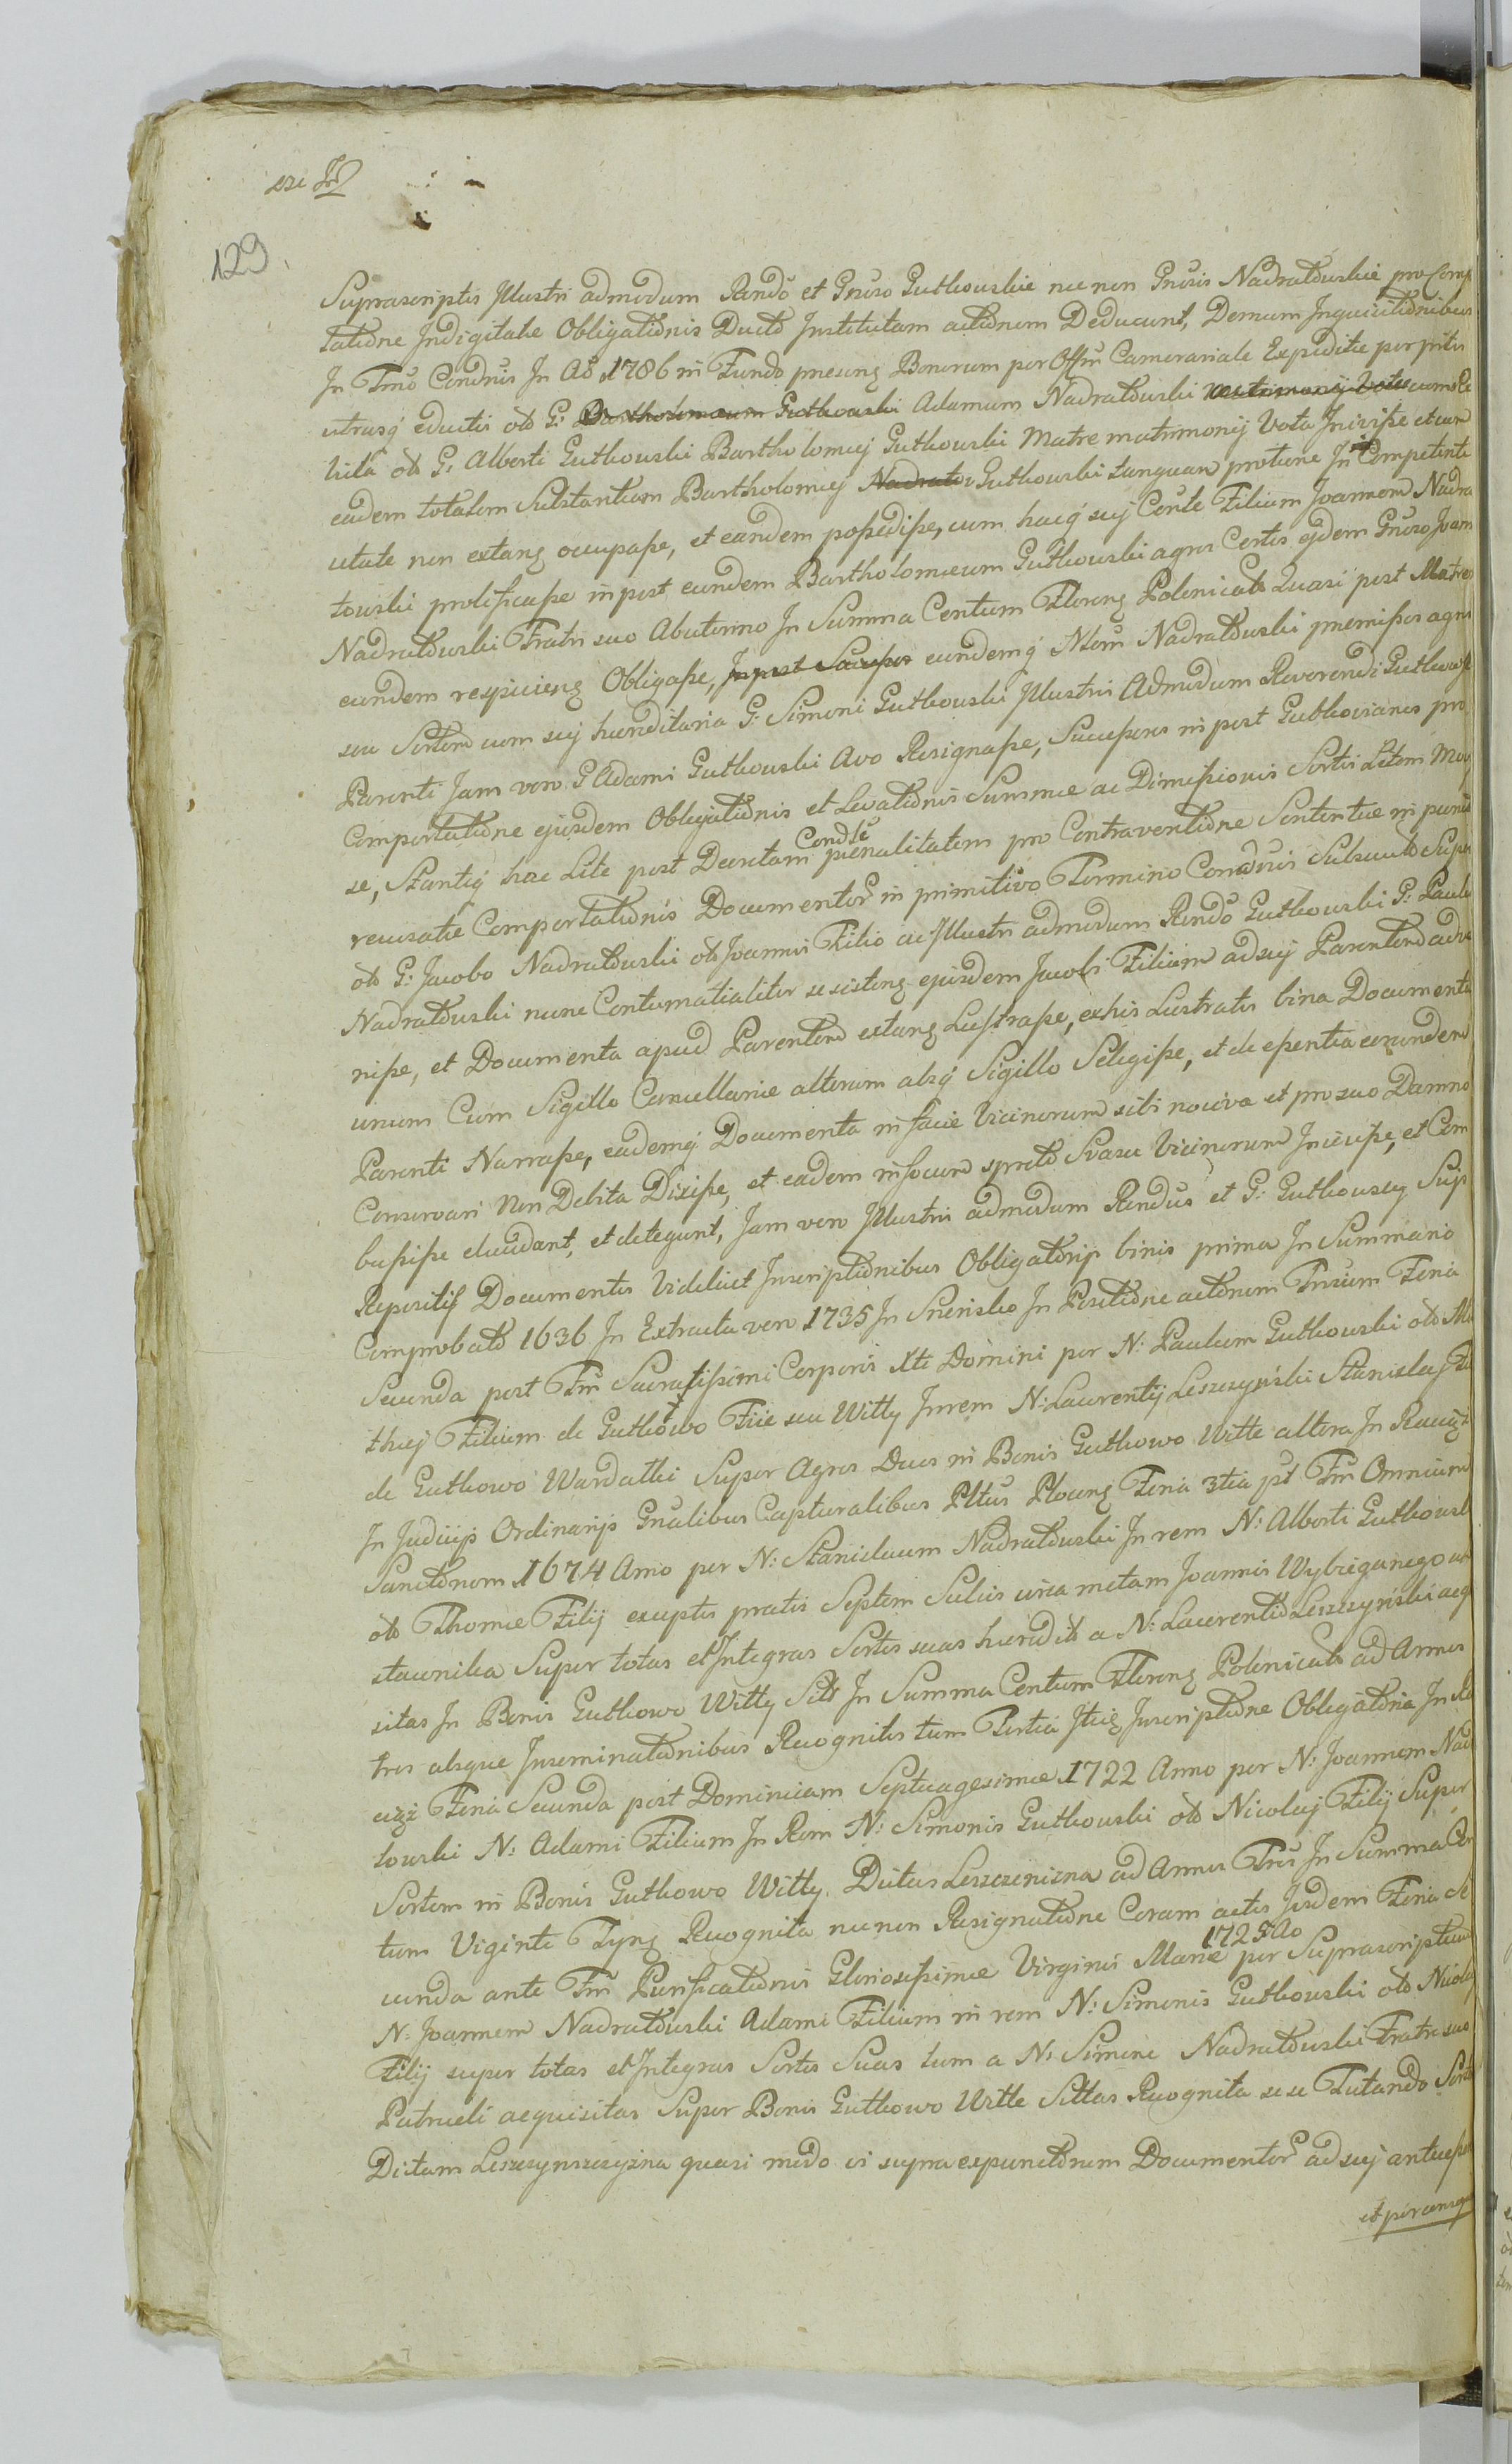 129.
Suprascriptis Illustri admodum Rando et Gnroso Gutkouskie nec non Gnrosis Nadratouskie pro Comp
tatione Indigitatae Obligationis Ducto Institutam actionem Deducunt, Demum Inquisitionibus
In Trno Condnis In Ao 1786 in Fundo pneseng Bonorum per Offm Camerariale Expeditie per prtes
utrasq eductis olo G: Bartholomaeum Gutkouski Adamum Nadratouski matrimonij votae cum Re
licta olo G: Alberti Gutkouski Bartholomiej Gutkouski Matre matrimonij Vota Iniviſse et cum
eadem totalem Substantiam Bartholomiej Nadrato Gutkouski tanquam protunc In Competenti
aetate non extang occupaſse, et eandem poſsediſse, cum hacq suj Conte Filium Joannem Nadra
touski prolificaſse in post eundem Bartholomaeum Gutkouski agros Certos ejdem Gnroso Joan
Nadratouski Fratri suo Abuterino In Summa Centum Floreng Polonical Quasi post Matrem
eundem respicieng Obligaſse, In post Succeſsor eundemq Nlem Nadratouski premiſsos agros
seu Sortem cum suj haereditaria G: Simoni Gutkouski Illustri Admodum Reverendi Gutkouski
Parenti Jam vero G Adami Gutkouski Avo Resignaſse, Succeſsores in post Gutkovianos pro
Comportatione ejusdem Obligationis et Levationis Summae ac Dimiſsionis Sortis Litem Mov
se, Stantiq hac Lite post Decretam Condle poenalitatem pro Contraventione Sententiae in puncto
recusatae Comportationis Documentor in primitivo Termino Condnis Subsecuto Super
olo G: Jacobo Nadratouski olo Joannis Filio ac Illustri admodum Rendo Gutkouski G: Paulo
Nadratouski nunc Contumatialiter se sisteng ejusdem Jacobi Filium ad suj Parentem adve
niſse, et Documenta apud Parentem extang Lustraſse, ex his Lustratis bina Documenta
unum Cum Sigillo Cancellariae alterum absq Sigillo Selegiſse, et de eſsentia eorundem
Parenti Narraſse, eademq Documenta in facie Vicinorum sibi nociva et pro suo Damno
Conservari Non Debita Dixiſse, et eadem in focum spreto Svasu Vicinorum Inieciſse, et Com
buſsiſse elucidant, et detegunt, Jam vero Illustris admodum Rendus et G: Gutkouscy Sup
Repositis Documentis Videlicet Inscriptionibus Obligatorijs binis prima In Summario
Comprobato 1636 In Extractu vero 1735 In Sneirsko In Positione actorum Tnrium Feria
Secunda post Fm Sacratiſsimi Corporis Xti Domini per N: Paulum Gutkouski olo Ma
thiej Filium de Gutkowo Fiie seu Witty In rem N: Laurentij Leszczyński Stanislaj Fi
de Gutkowo Wardatki Super Agros Duos in Bonis Gutkowo Witte altera In Raciąż
In Judicijs Ordinarijs Gnalibus Capturalibus Pltus Ploceng Feria 3tia pt Fm Omnium
Sanctorum 1674 Anno per N: Stanislaum Nadratouski In rem N: Alberti Gutkousk
olo Thomae Filij exceptis pratis Septem Sulcis circa metam Joannis Wybieganego
stawnika Super totas et Integras Sortes suas haeredit a N: Laurentio Leszczyński acq
sitas In Bonis Gutkowo Witty Sitt In Summa Centum Floreng Polonical ad Annos
tres absque Inseminationibus Recognitis tum Tertia Itiq Inscriptione Obligatoria In Ra
ciąż Feria Secunda post Dominicam Septuagesimae 1722 Anno per N: Joannem Nad
touski N: Adami Filium In Rem N: Simonis Gutkouski olo Nicolaj Filij Super
Sortem in Bonis Gutkowo Witty Dictas Leszczenizna ad Annos Tres In Summa Cen
tum Viginti Tyng Recognita nec non Resignatione Coram actis Jisdem Feria Se
cunda ante Fm Purificationis Glorioſsiſsimae Virginis Mariae 1725 Ao per Suprascriptum
N. Joannem Nadratouski Adami Filium in rem N: Simonis Gutkouski olo Nicolaj
Filij super totas et Integras Sortes Suas tum a N: Simone Nadratouski Fratre suo
Patrueli acquisitas Super Bonis Gutkowo Witte Sittas Recognita sese Tutando Sorte
Dictam Leszczynszczyzna quasi modo ci supra expunctorum Documentor ad suj anteceſs
et per conseq